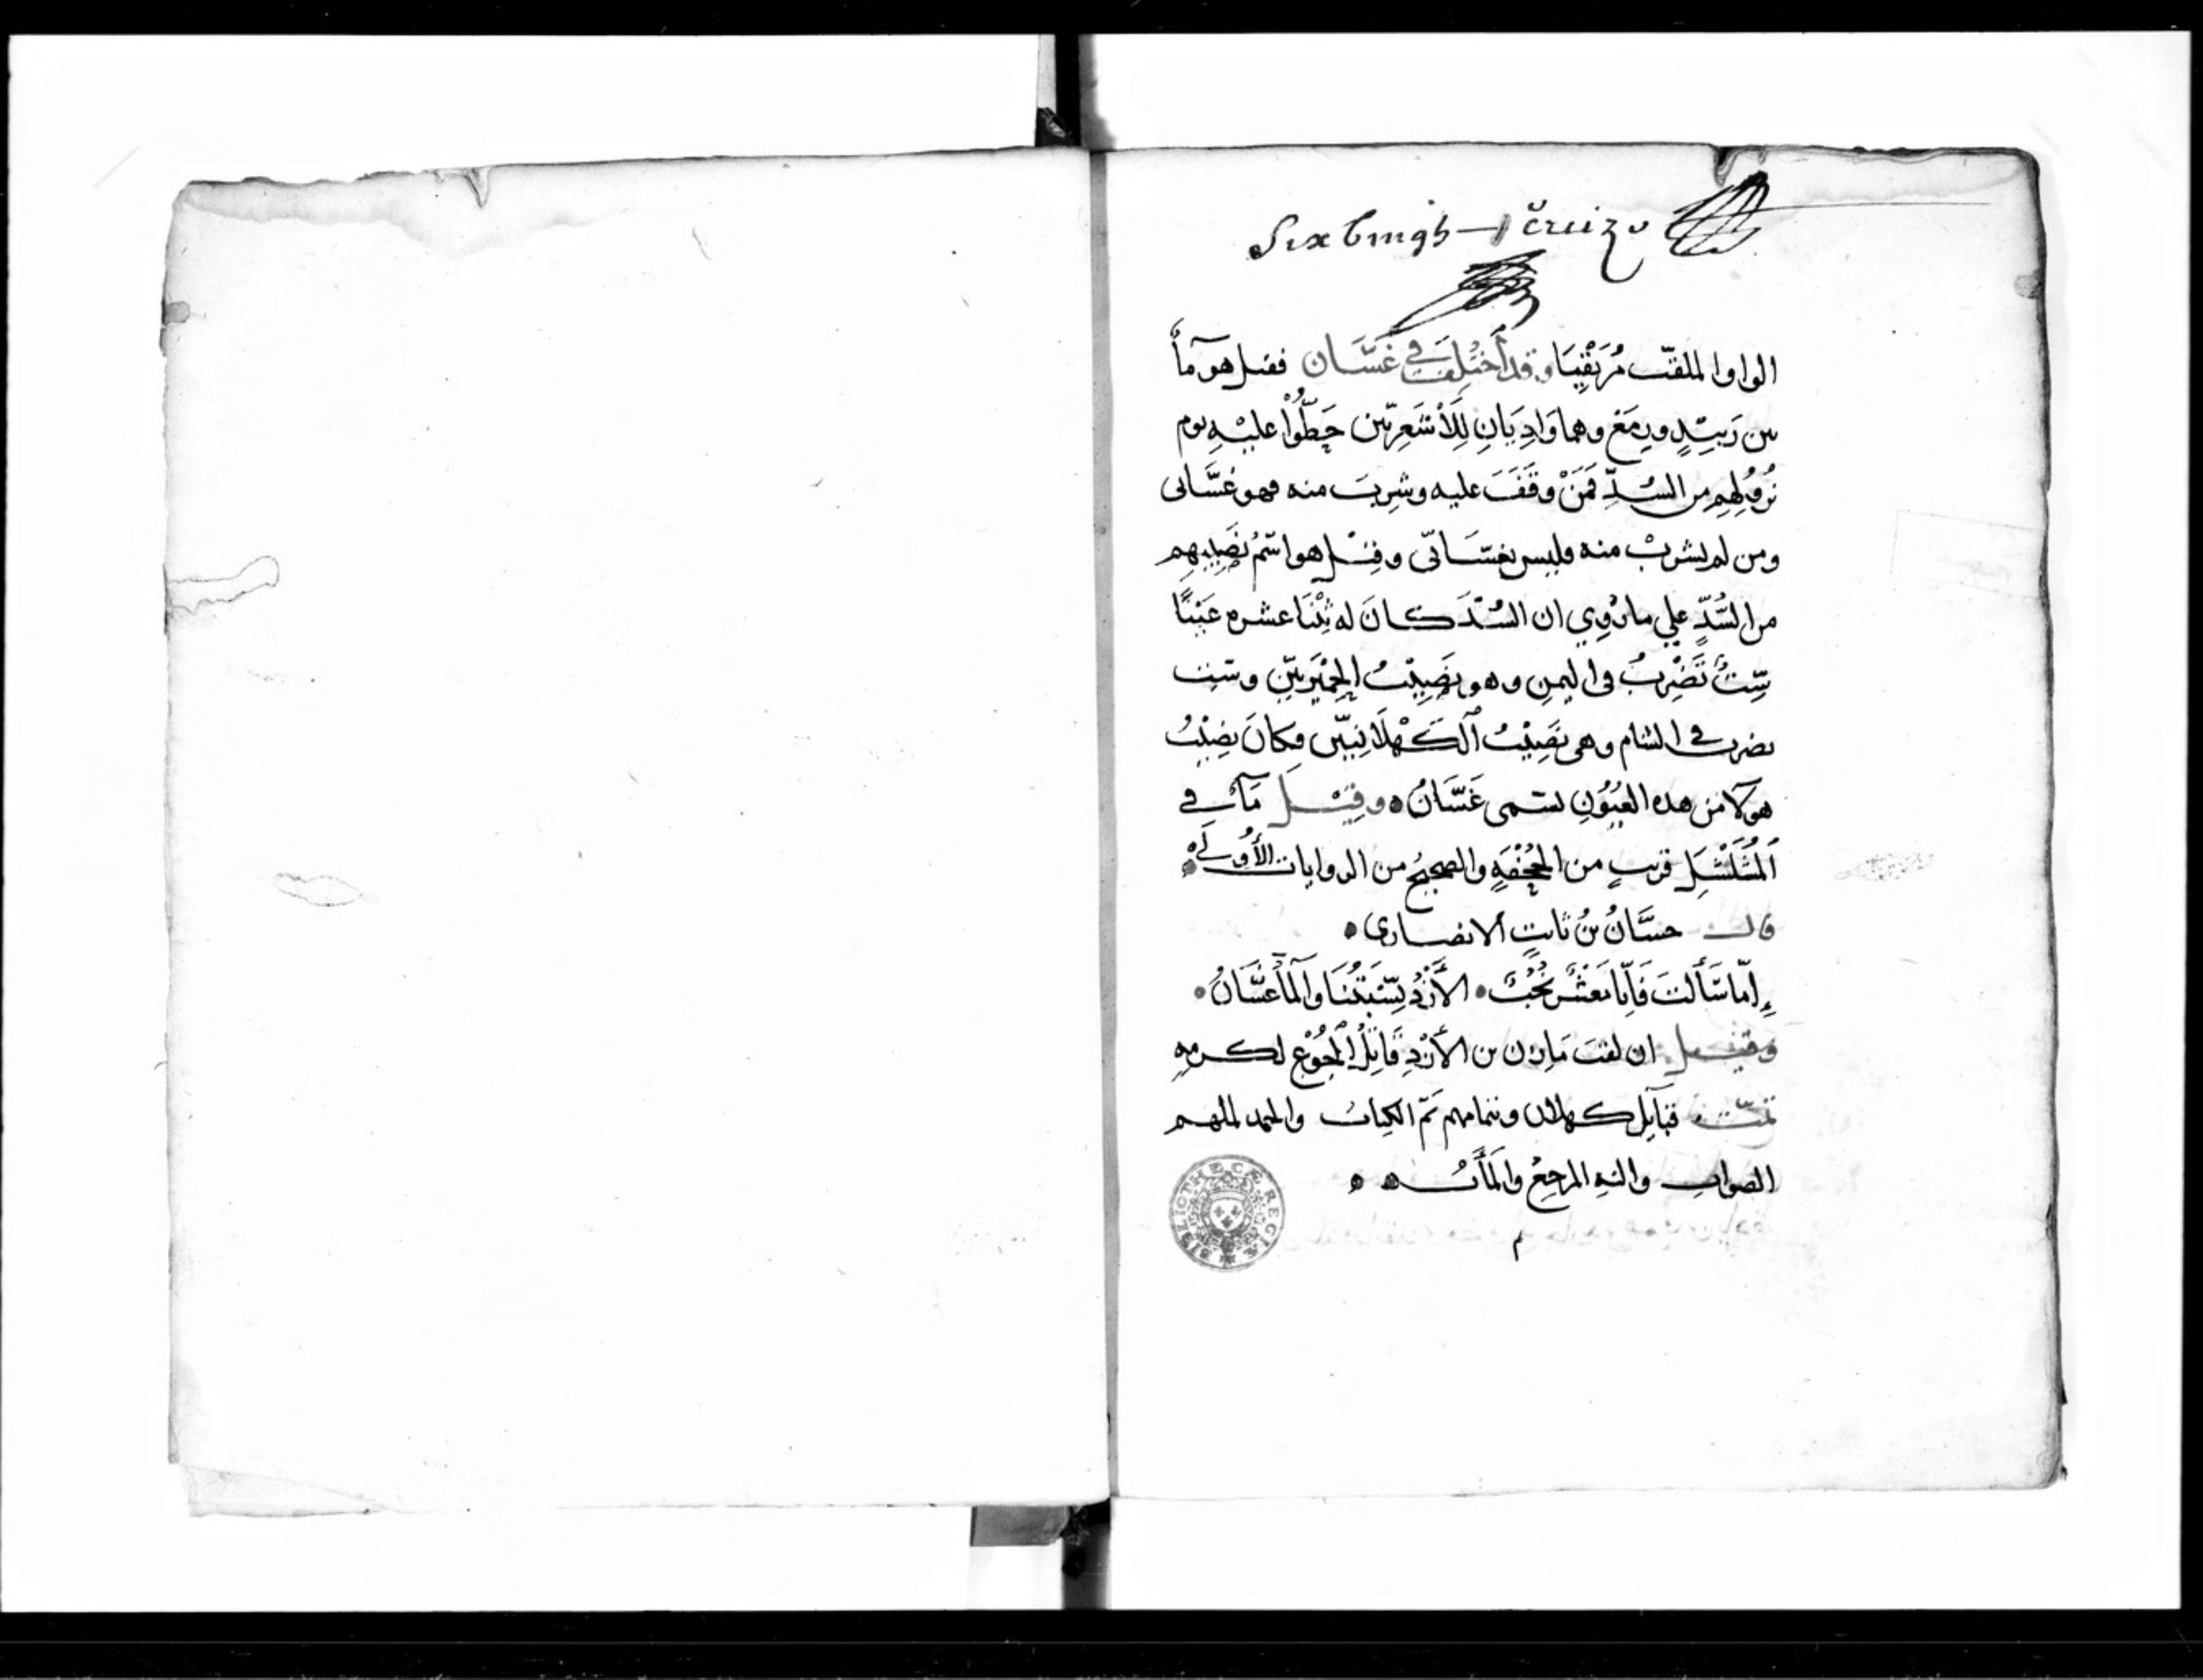 الواو الملقّب مُزَيْقِيَا وقد أُختُلِفَ في غَسَّان فقيل هو مآءٌ
بين زَبِيْدٍ ورِمَعْ وهما وَادِيَانِ لِلأَشْعَرِيّين حَطُّوْا عليْهِ يوم
نُزُولِهِم من السُدِّ فَمَنْ وقَفَ عليه وشرِبَ منه فهو غسَّانى
ومن لم يشربْ منه فليس بغسّانّى وقِيْل هو اسْمُ نَصِيبِهِم
من السُّدِّ علي ما رُوِي ان السُدَّ كانَ له ثِنْتَا عشره عَيْنًا
سِتٌ تَضْرِبُ فى اليمنِ وهو نَصِيْبُ الحِمْيَرِيّيْنَ وستٌ
تضرب في الشام وهى نَصِيْبُ ٱلكَهْلَانِيّيْن فكانَ نصِيْبُ
هولآ من هده العُيُوْنِ يسمى غَسَّانُ ه وقِيْل مآءٌ في
ٱلمُشَلَّشَلِ قريبٍ من الجُحْفَةِ والصحِيحُ من الروايات الأُوْلَى ه
قال حسَّانُ بنُ ثابتٍ ألانصارى ه
إِمّا سَأَلتَ فَإِنّا مَعْشَرٌ نُجُبٌ • الأَزْدُ نِسْبَتُنَا والمآءُ غسَّانُ •
وقِيْل ان لقبَ مَازن بن الأَزْدِ قَاتِلُ الجُوْع لكرمِهِ
تمّت قبآيل كهلان وبتمامهم تمّ الكتاب والحمد لملهم
الصوابِ واليْهِ المرجعُ والمَأَبُ ه ه
م
BIBLIOTHECÆ REGIÆ